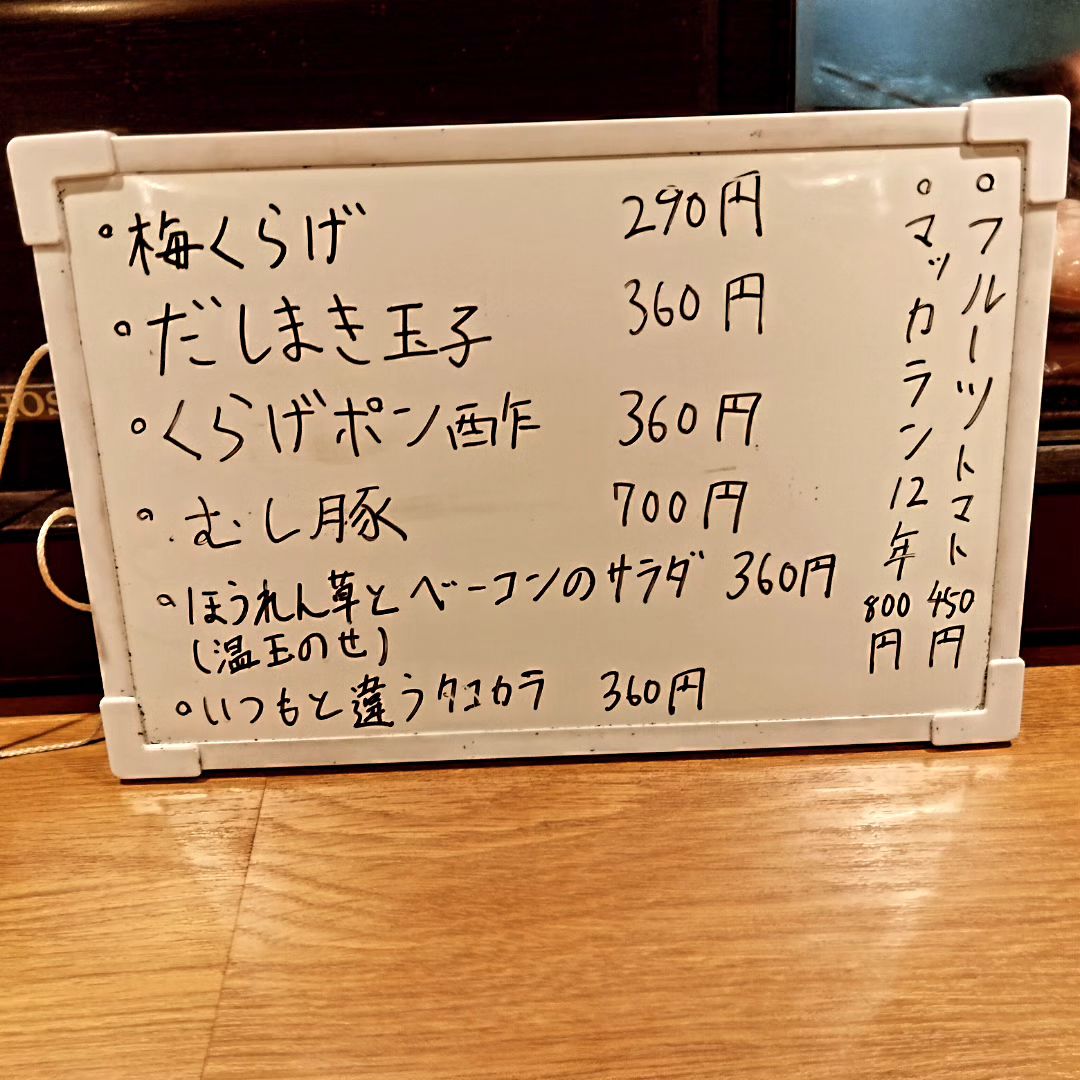 梅くらげ 290円
だしまき玉子 360円
くらげポン酢 360円
むし豚 700円
ほうれん草とベーコンのサラダ 360円
(温玉のせ)
いつもと違うタコカラ 360円
フルーツトマト 450円
マッカラン12年 800円